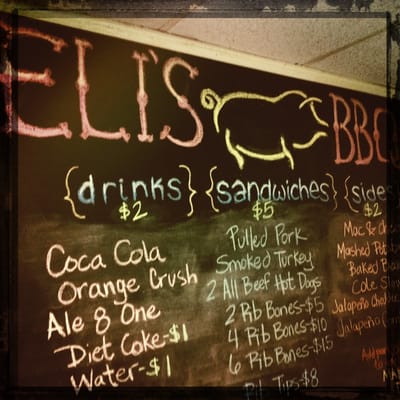 ELI'S BBQ
{drinks} {sandwiches} {sides
$2 $5 $2
Coca Cola
Orange Crush
Ale 8 One
Diet Coke-$1
Water-$1
Pulled Pork
Smoked Turkey
2 All Beef Hot Dogs
2 Rib Bones-$5
4 Rib Bones-$10
6 Rib Bones-$15
Rib Tips-$8
Mac & Che
Mashed Potato
Baked Bea
Cole Sla
Jalapeño Chedd
Jalapeño